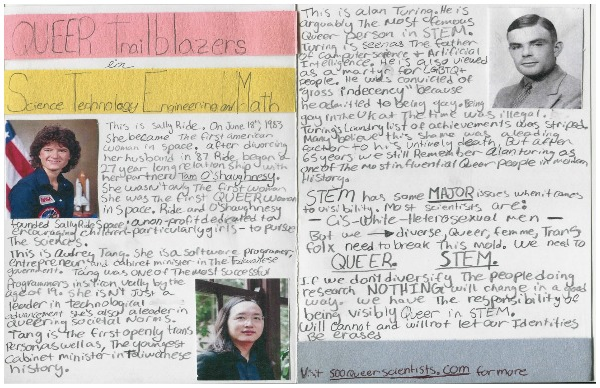 QUEER Trailblazers
in
Science Technology Engineering and Math
This is Sally Ride. On June 18th, 1983
she became the first american
woman in space. after divorcing
her husband in '87 Ride began a
27 year long relationship with
her partner Tam O'shaughnessy.
She wasn't only the first woman
she was the first QUEER woman
in space. Ride and O'Shaughnessy
founded Sally Ride Space: a non-profit dedicated to
encouraging children-particularly girls- to pursue
The Sciences.
This is Audrey Tang. She is a software programer,
Entrepreneur and cabinet minister in the Taiwanese
government. Tang was one of the most successful
Programmers in World by the
age of She isn't Just a
leader in technological
advancement she's also a leader in
queering societal norms.
Tang is the first openly trans
Person as well as, The youngest
Cabinet minister in Taiwanese
history.
This is alan Turing. He is
arguably the most famous
Queer person in STEM.
Turing is seen as the father
of computer science & Artificial
Intelligence. He is also viewed
as a martyr for LGBTQ+
people. He was convicted of
"gross indecency" because
he admitted to being gay. Being
gay in the UK at the time was illegal.
Turing's laundry list of achievements was striped.
Many believe this shame was a leading
factor to his untimely death. But after
65 years we still Remember alan turing as
one of the most influential Queer people in modern
History.
STEM has some MAJOR issues when it comes
to visibility. Most scientists are:
- Cis-White-Heterosexual men -
But we → diverse, Queer, femme, Trans
folx need to break this mold. We need to
QUEER. STEM.
If we don't diversify the people doing
research NOTHING will change in a good
way. we have the responsibility of
being visibly Queer in STEM.
Will cannot and will not let our Identities
Be erased
Visit 500queerscientists.com for more